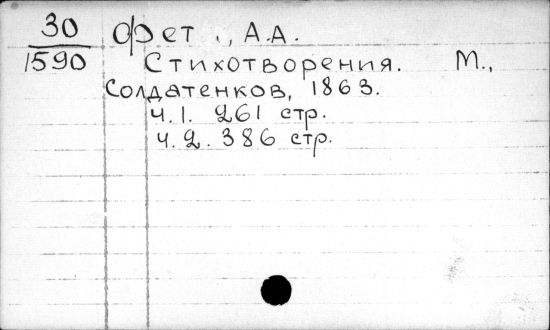 30 Фет., А.А.
1590 Стихотворения. М.,
Солдатенков, 1863.
ч.1. 261 стр.
ч.2. 386 стр.